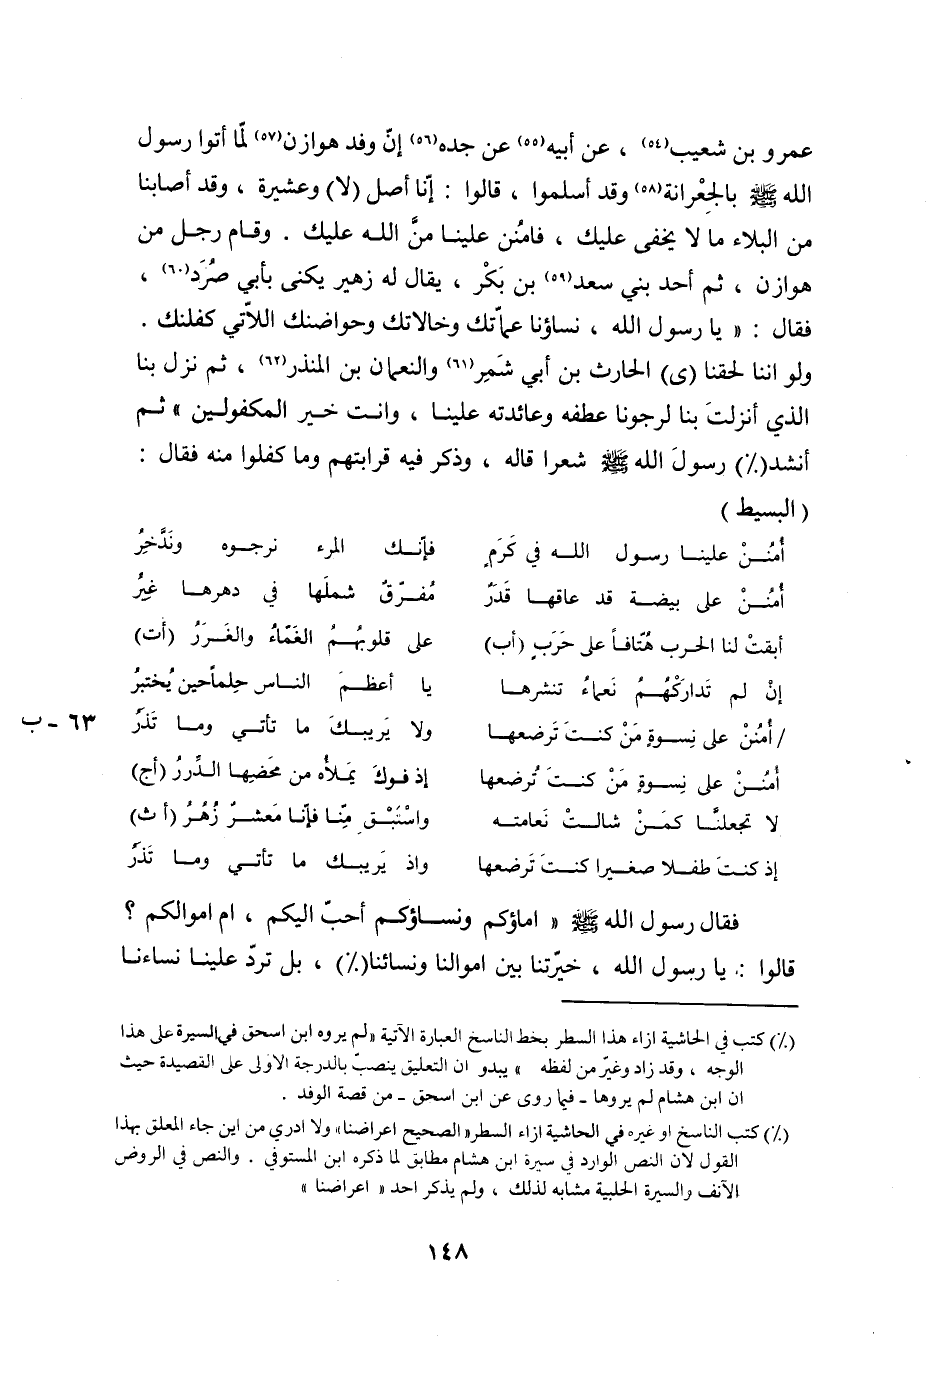 عمرو بن شعيب(٥٤) ، عن أبيه(٥٥) عن جده(٥٦) إنّ وفد هوازن(٥٧) لمّا أتوا رسول
الله ﷺ بالجِعْرانة(٥٨) وقد أسلموا ، قالوا : إنّا أصل (لا) وعشيرة ، وقد أصابنا
من البلاء ما لا يخفى عليك ، فامنُن علينا منَّ الله عليك . وقام رجل من
هوازن ، ثم أحد بني سعد(٥٩) بن بَكْر ، يقال له زهير يكنى بأبي صُرَد(٦٠) ،
فقال : « يا رسول الله ، نساؤنا عمّاتك وخالاتك وحواضنك اللاّتي كفلنك .
ولو اننا لحقنا (ى) الحارث بن أبي شَمِر(٦١) والنعمان بن المنذر(٦٢) ، ثم نزل بنا
الذي أنزلتَ بنا لرجونا عطفه وعائدته علينا ، وانت خير المكفولين » ثم
أنشد(٪) رسولَ الله ﷺ شعرا قاله ، وذكر فيه قرابتهم وما كفلوا منه فقال :
(البسيط)
أُمنُـنْ علينـا رسول الله في كَرَمٍ فإنّـك المرء نرجـوه ونَدَّخِرُ
أُمنُـنْ على بيضة قد عاقهـا قَدَرٌ مُفرّقٌ شملَها في دهرهـا غِيَرُ
أبقتْ لنا الحرب هُتّافاً على حَرَبٍ (أب) على قلوبهُمُ الغَمّاءُ والغَرَرُ (أت)
إنْ لم تَداركْهُمُ نَعماءُ تنشرهـا يا أعظمَ النـاس حِلماًحين يُختبرُ
٦٣ - ب /أُمنُنْ على نِسوةٍ مَنْ كنتَ تَرضعهـا ولا يَريبـكَ ما تأتـي ومـا تَذَرُ
أُمنُـنْ على نِسـوةٍ مَنْ كنـتَ تُرضعها إذ فوكَ يَملأه من مَحَضِهـا الـدِّررُ (أج)
لا تجعلنَّـا كمَـنْ شالـتْ نَعامتـه واسْتَبْـقِ مِنّـا فإنّـا مَعشـرٌ زُهُرُ (أ ث)
إذ كنـتَ طفـلا صغيـرا كنـتَ تَرضعها واذ يَريبـك ما تأتـي ومـا تَذَرُ
فقال رسول الله ﷺ « اماؤكم ونسـاؤكـم أحبّ اليكم ، ام اموالكم ؟
قالوا : يا رسول الله ، خيّرتنا بين اموالنا ونسائنا(٪) ، بل تردّ علينـا نساءنـا
(٪) كتب في الحاشية ازاء هذا السطر بخط الناسخ العبارة الآتية «لم يروه ابن اسحق في السيرة على هذا
الوجه ، وقد زاد وغيّر من لفظه » يبدو ان التعليق ينصبّ بالدرجة الاولى على القصيدة حيث
ان ابن هشام لم يروها - فيما روى عن ابن اسحق - من قصة الوفد .
(٪) كتب الناسخ او غيره في الحاشية ازاء السطر «الصحيح اعراضنا» ولا ادري من اين جاء المعلق بهذا
القول لأن النص الوارد في سيرة ابن هشام مطابق لما ذكره ابن المستوفي . والنص في الروض
الآنف والسيرة الحلبية مشابه لذلك ، ولم يذكر احد « اعراضنا »
١٤٨